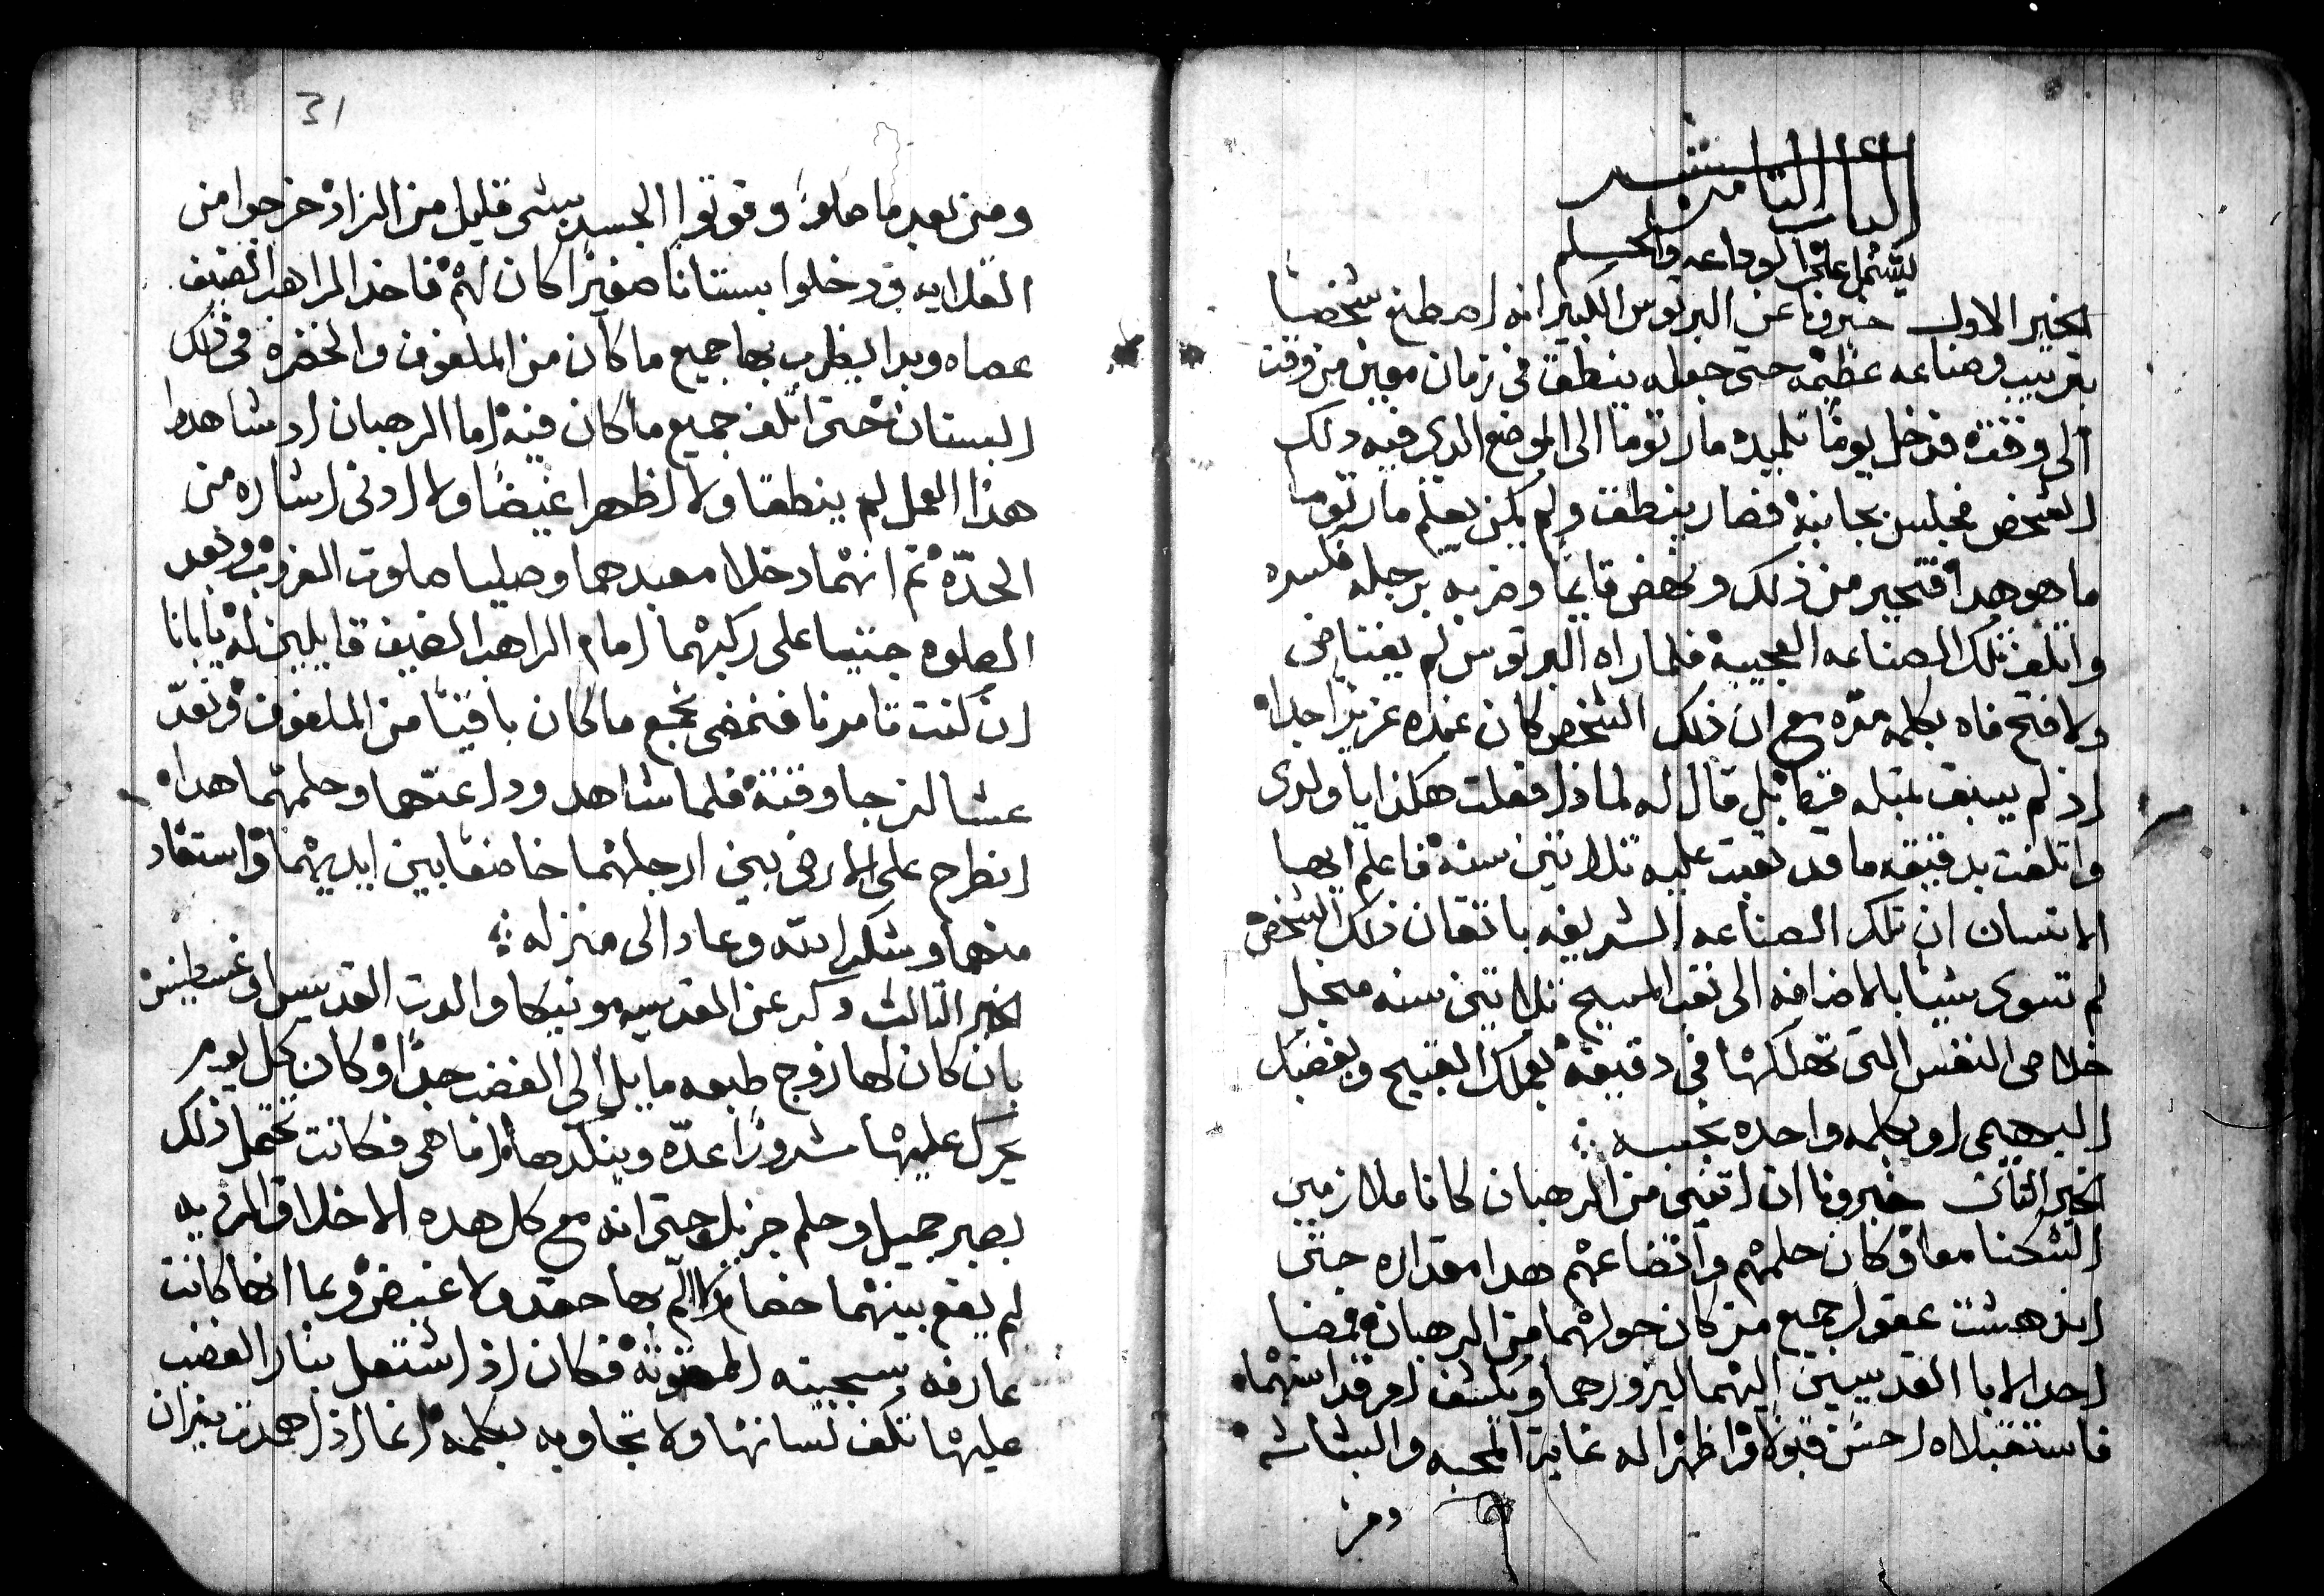 الباب الثامن عشر
يشتمل على الوداعه والحلم
الخبر الاول خبرونا عن البرتوس الكبير انه اصطنع شخصا
بترتيب وصناعه عظيمه حتى جعله ينطق فى زمان معين من وقت
الى وقت فدخل يوما تلميده مار توما الى الموضع الدى فيه دلك
الشخص فجلس بجانبه فصار ينطق ولم يكن يعلم مار توما
ما هو هدا فتحير من ذلك ونهض قايما وضربه برجله فكسره
واتلف تلك الصناعه العجيبه فلما راه البرتوس لم يغتاض
ولا فتح فاه بكلمه مره مع ان ذلك الشخص كان عنده عزيزا جدا
اذ لم يسبق بمتله قط بل قال له لماذا فعلت هكذا يا ولدى
واتلفت بدقيقه ما قد تعبت عليه تلاتين سنه فاعلم ايها
الانسان ان تلك الصناعه الشريفه باتقان ذلك الشخص
لم تسوى شيئا بالاضافه الى تعب المسيح تلاتين سنه من اجل
خلاص النفس التى تهلكها فى دقيقه بعملك القبيح وبغضبك
البهيمى او بكلمه واحده نجسه
الخبر الثانى خبرونا ان اتنين من الرهبان كانا ملازمين
السكنا معا وكان حلمهم واتضاعهم هدا مقداره حتى
اندهشت عقول جميع من كان حولهما من الرهبان فمضا
احد الابا القديسين اليهما ليزورهما ويكشف امر قداستهما
فاستقبلاه احسن قبولا واظهرا له غاية المحبه والبشاشه
ومن
31
ومن بعد ما صلوا وقوتوا الجسد بشى قليل من الزاد خرجوا من
القلايه ودخلوا بستانا صغيرا كان لهم فاخد الراهب الضيف
عصاه وبدا يضرب بها جميع ما كان من الملفوف والخضره فى ذلك
البستان حتى اتلف جميع ما كان فيه اما الرهبان اد شاهدا
هذا العمل لم ينطقا ولا اظهرا غيضا ولا ادنى اشاره من
الحدّه ثم انهما دخلا معبدهما وصليا صلوت الغروب وبعد
الصلوه جتيا على ركبهما امام الراهب الضيف قايلين له يا ابانا
ان كنت تامرنا فنمضى نجمع ما كان باقيا من الملفوف ونعدّ
عشا لنزجا وقتة فلما شاهد وداعتهما وحلمهما هدا
انطرح على الارض بين ارجلهما خاضعا بين ايديهما واستفاد
منهما وشكر الله وعاد الى منزله
الخبر التالت دكر عن القديسه مونيكا والدت القديس اوغسطينس
بان كان لها زوج طبعه مايل الى الغضب جدا وكان كل يوم
يحرك عليها شرورا عدّه وينكدها اما هى فكانت تحتمل ذلك
بصبر جميل وحلم جزيل حتى انه مع كل هده الاخلاق الرديه
لم يقع بينهما خصام ولا الّم بها حقد ولا غيض وبما انها كانت
عارفه بسجيته فكان اذ اشتعل بنار الغضب
عليها تكف لسانها ولا تجاوبه بكلمه انما اذا همدت نيران